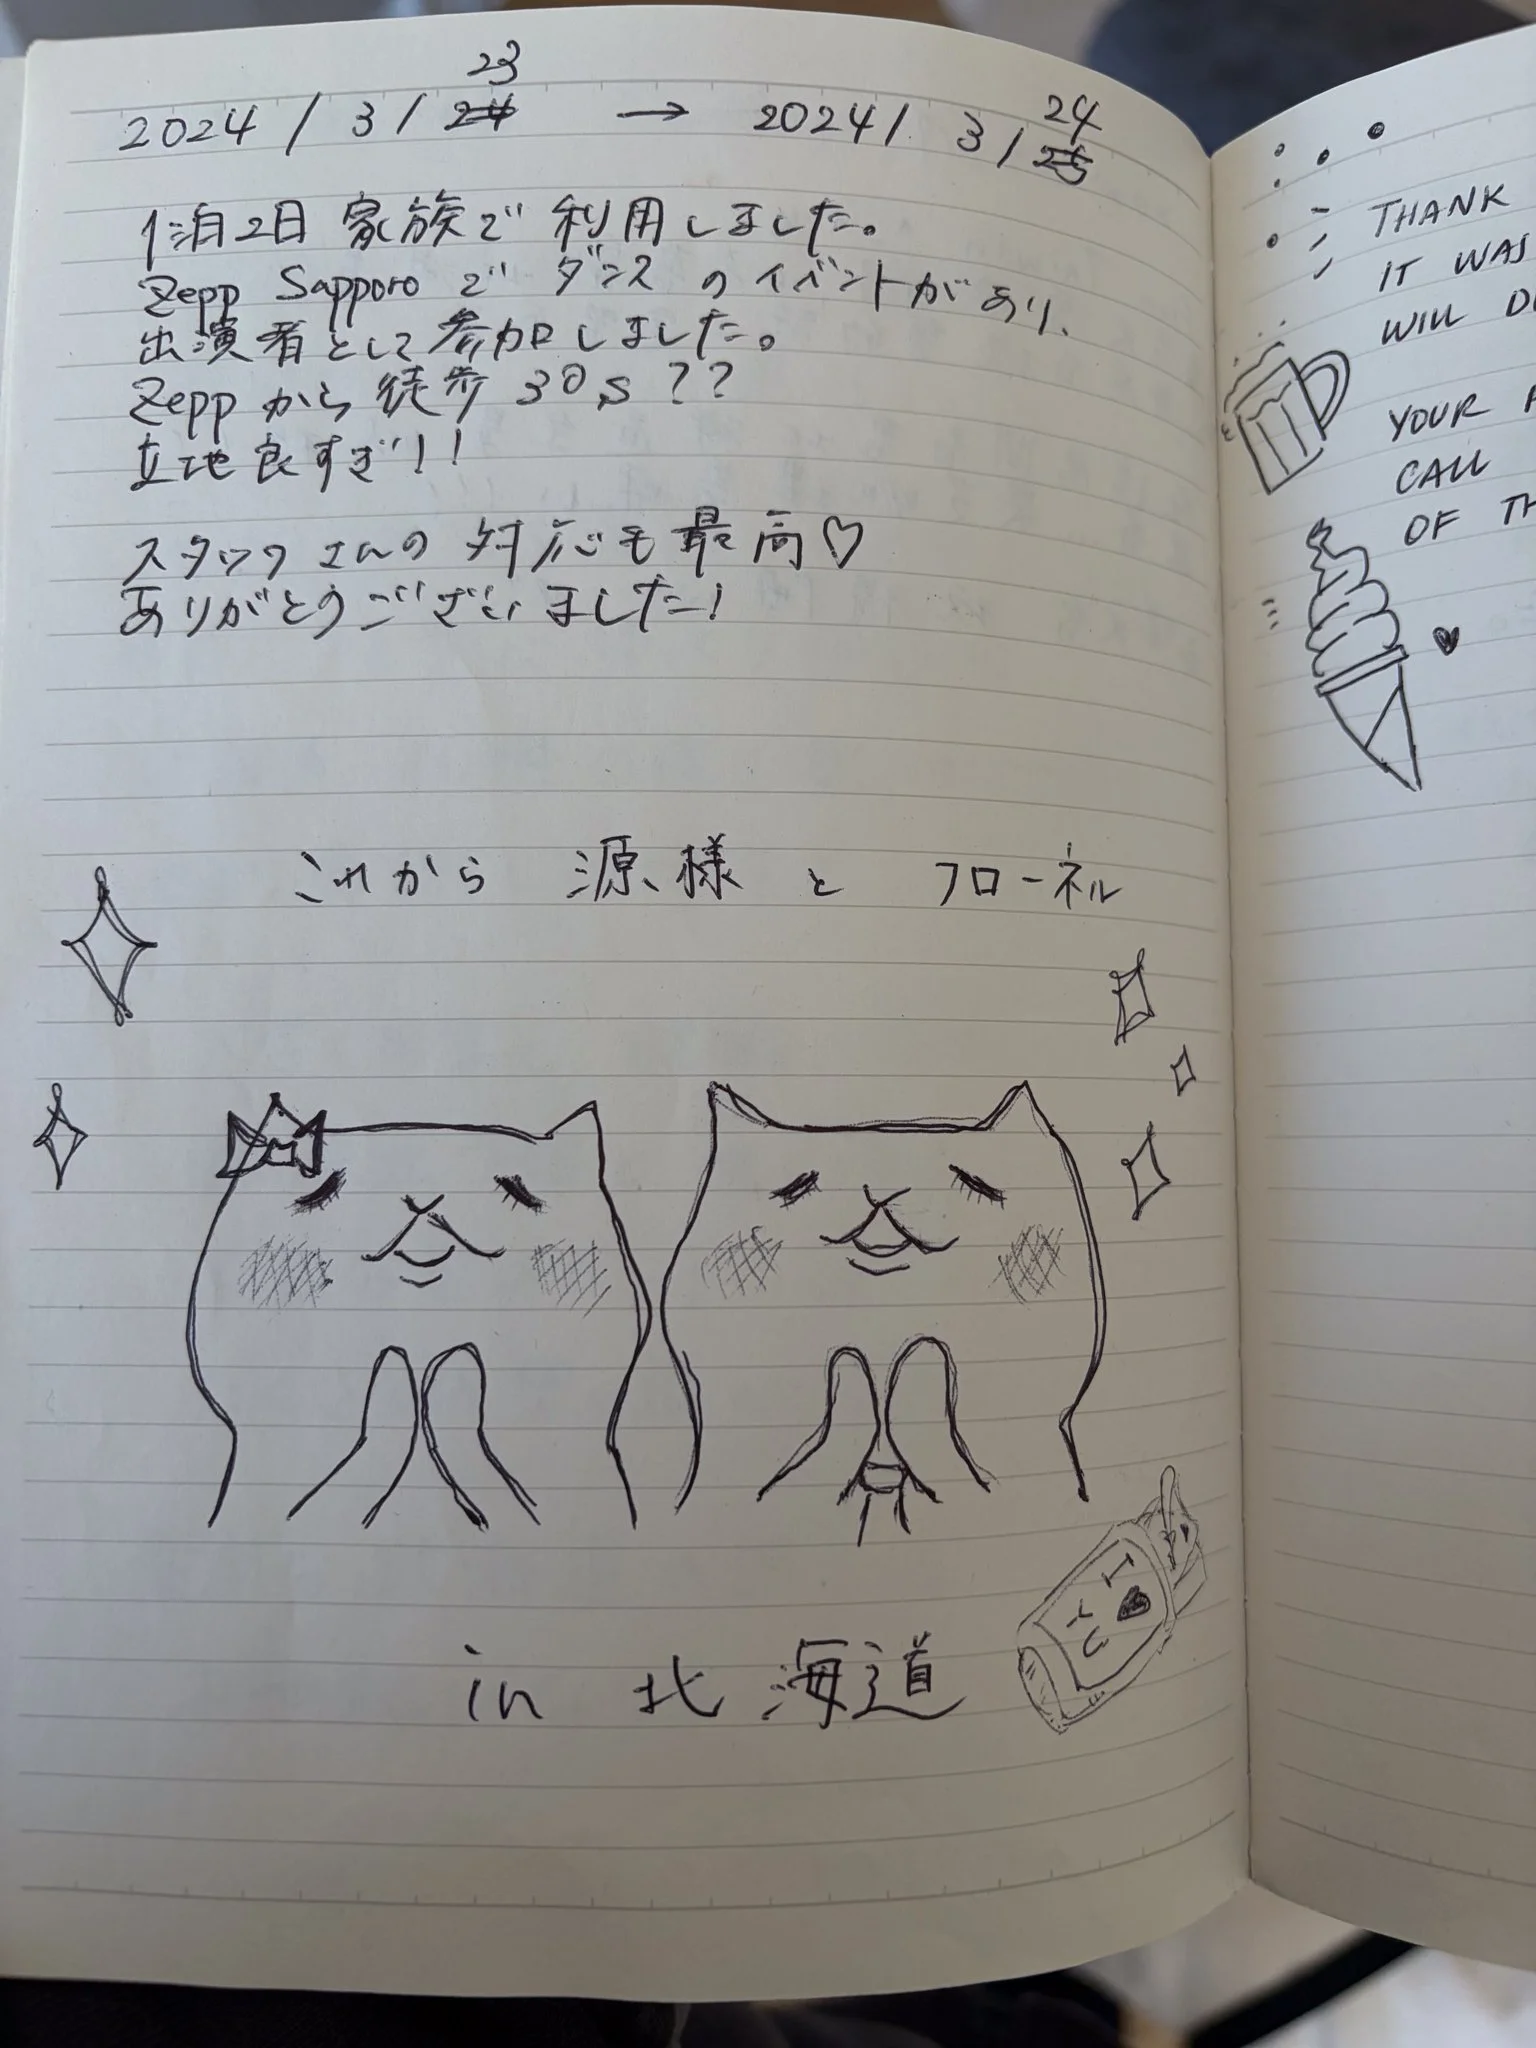 2024/3/23 → 2024/3/24
1泊2日 家族で 利用しました。
Zepp Sapporo で ダンス の イベントがあり、
出演者として参加しました。
Zepp から 徒歩 30s ??
立地良すぎ!!
スタッフさんの 対応も最高♡
ありがとうございました!
これから 源様 と フローネル
in 北海道
I ♥
YU
THANK
IT WAS
WILL
YOUR
CALL
OF